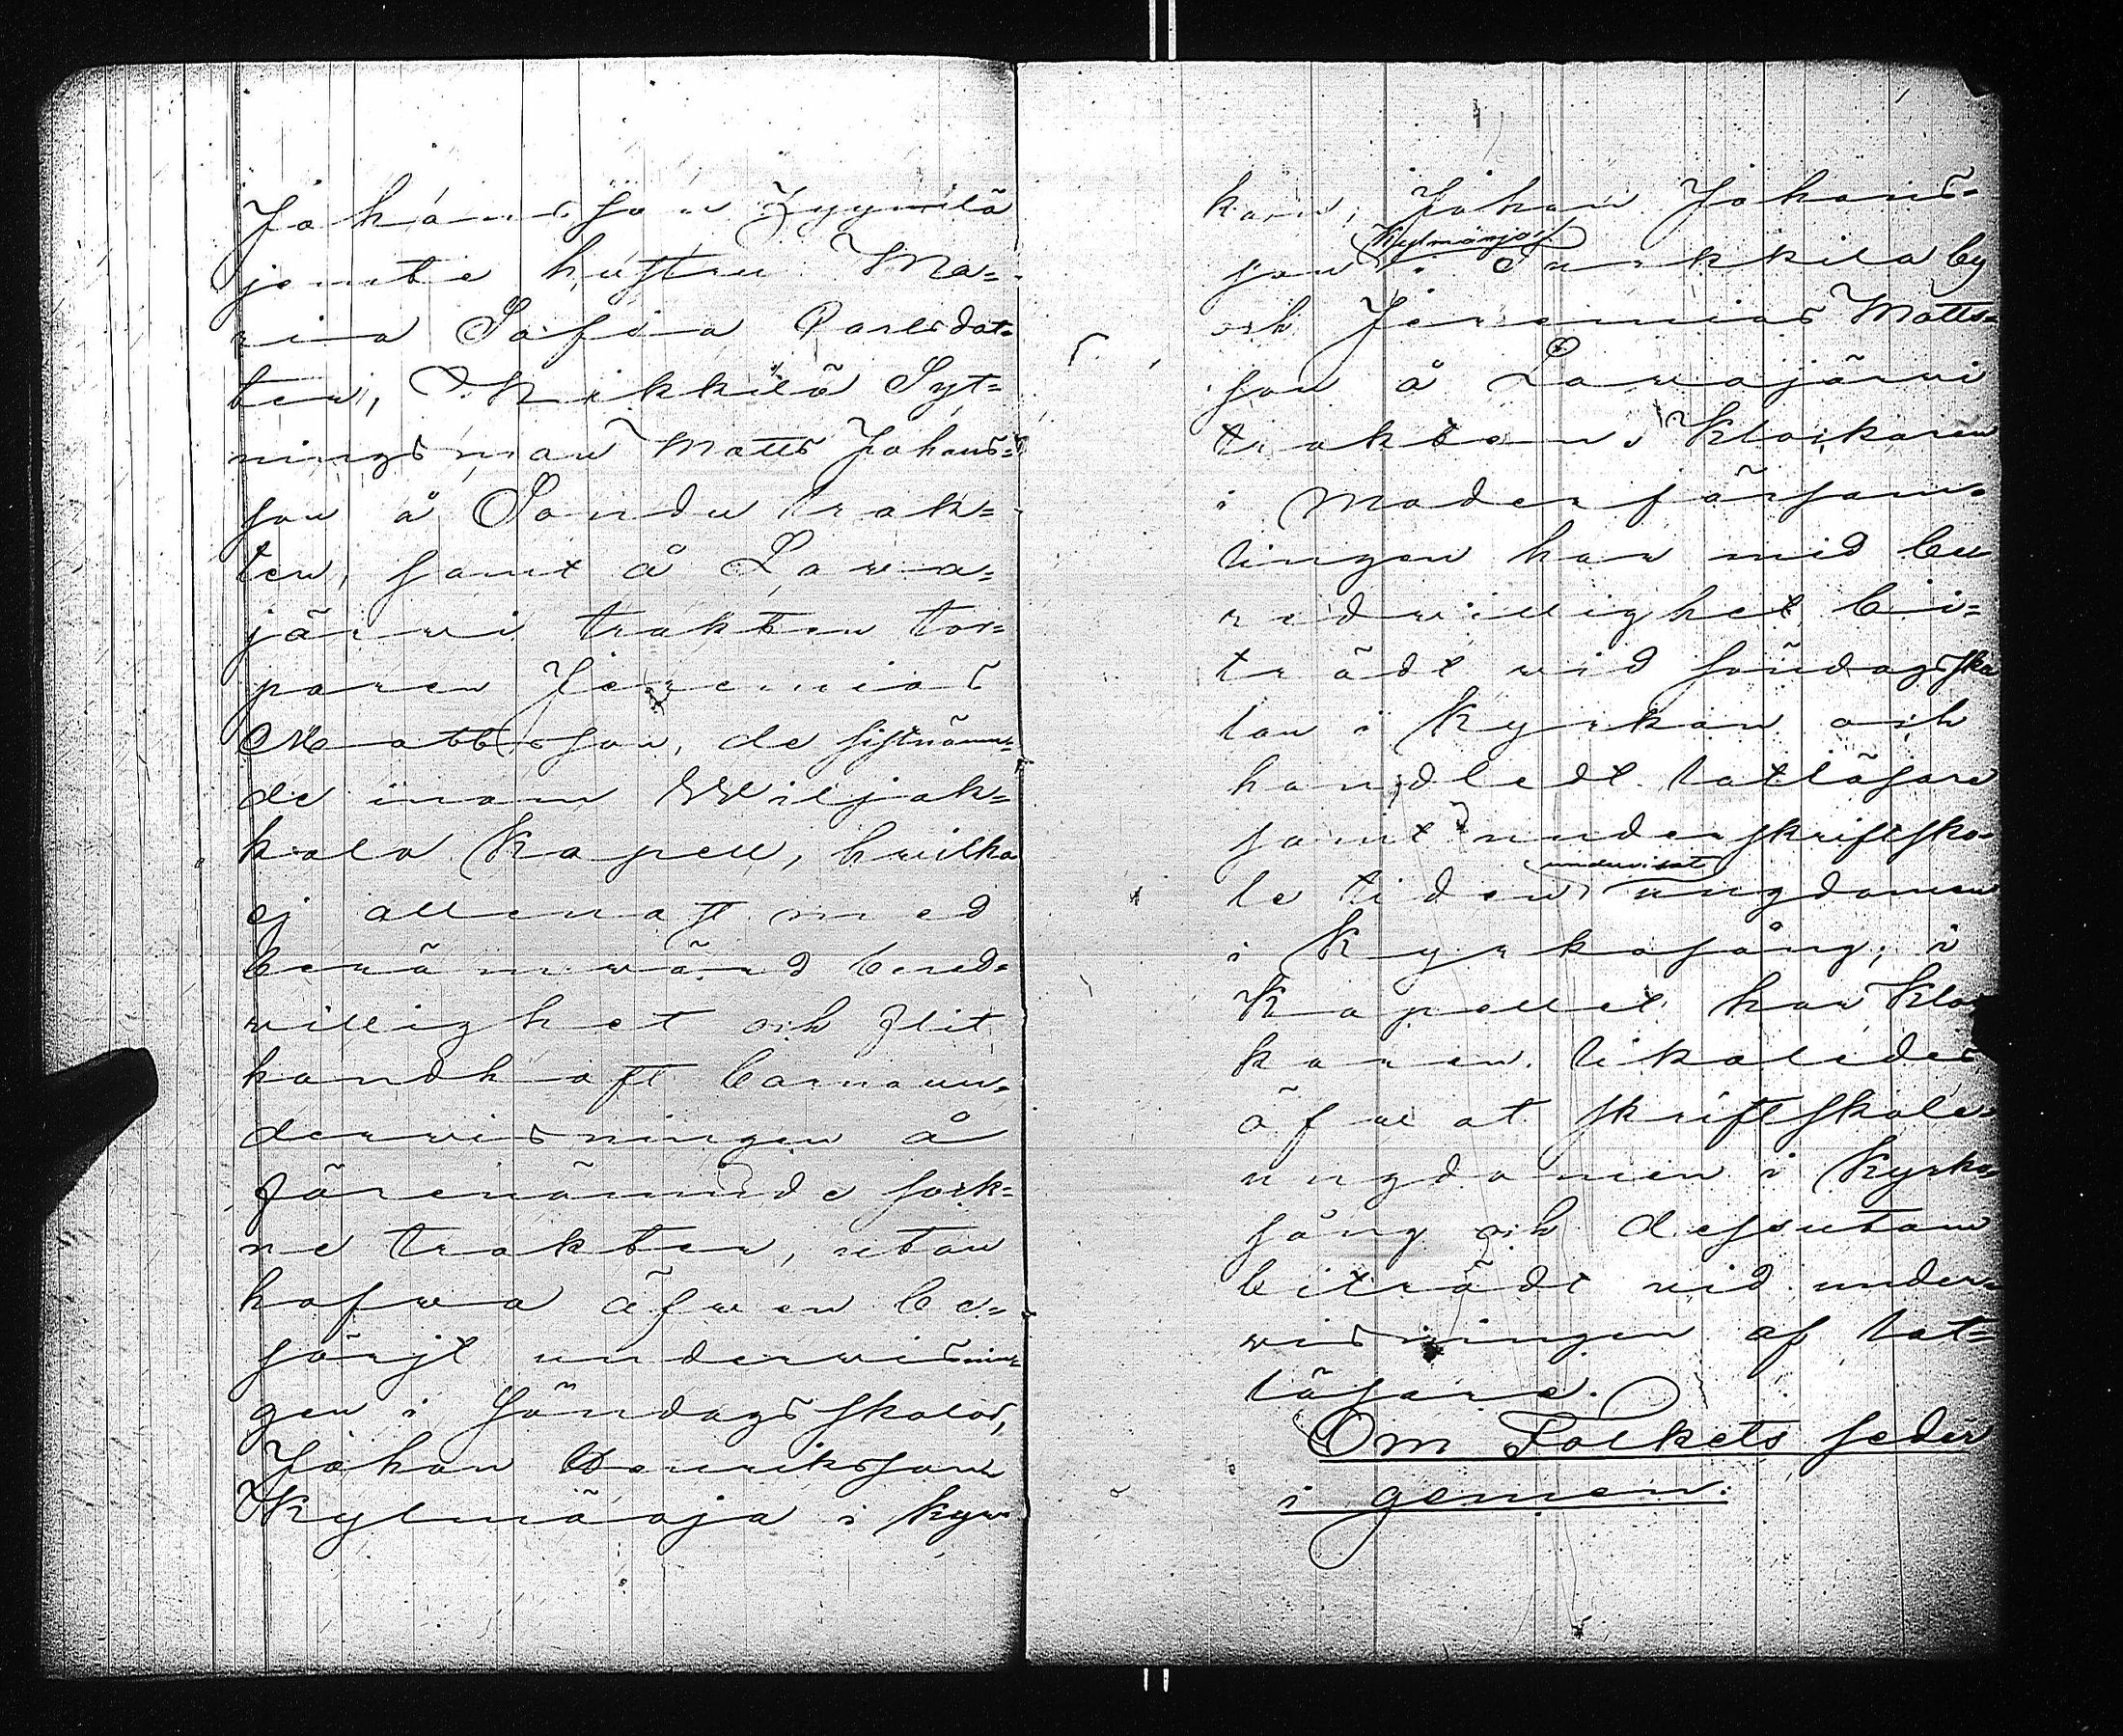 Johansson Jyynilä
jemte hustru Ma=
ria Sofia Carlsdot=
ter, Mikkilä Syt=
ningsman Matts Johans=
son å Sondu trak=
ten, samt å Lava=
järvi trakten tor=
paren Jeremias
Mattsson, de sistnämn=
de inom Wiljak=
kala Kapell, hvilka
ej allenast med
berömvärd bered=
willighet och flit
handhaft barnaun=
dervisningen å
förenämnde sock=
ne trakter, utan
hafva äfwen be=
sörjt undervisnin=
gen i söndagsskolor,
Johan Henriksson
Kylmäoja i kyr=
kan, Johan Johans=
Kylmäoja
son i Turkkila by
och Jeremias Matts=
son å Lavajärvi
trakten. Klockaren
i moderförsam=
lingen har med be
redvillighet bi=
trädt vid söndagssko
lan i Kyrkan och
handledt latläsare
samt under skriftsko=
undervisat
le tiden ungdomen
i Kyrkosång; i
Kapellet har Kloc
karen likaledes
öfwat skriftskole=
ungdomen i Kyrko=
sång och dessutom
biträdt vid under=
visningen af lat=
läsare.
Om Folkets seder
i gemen.